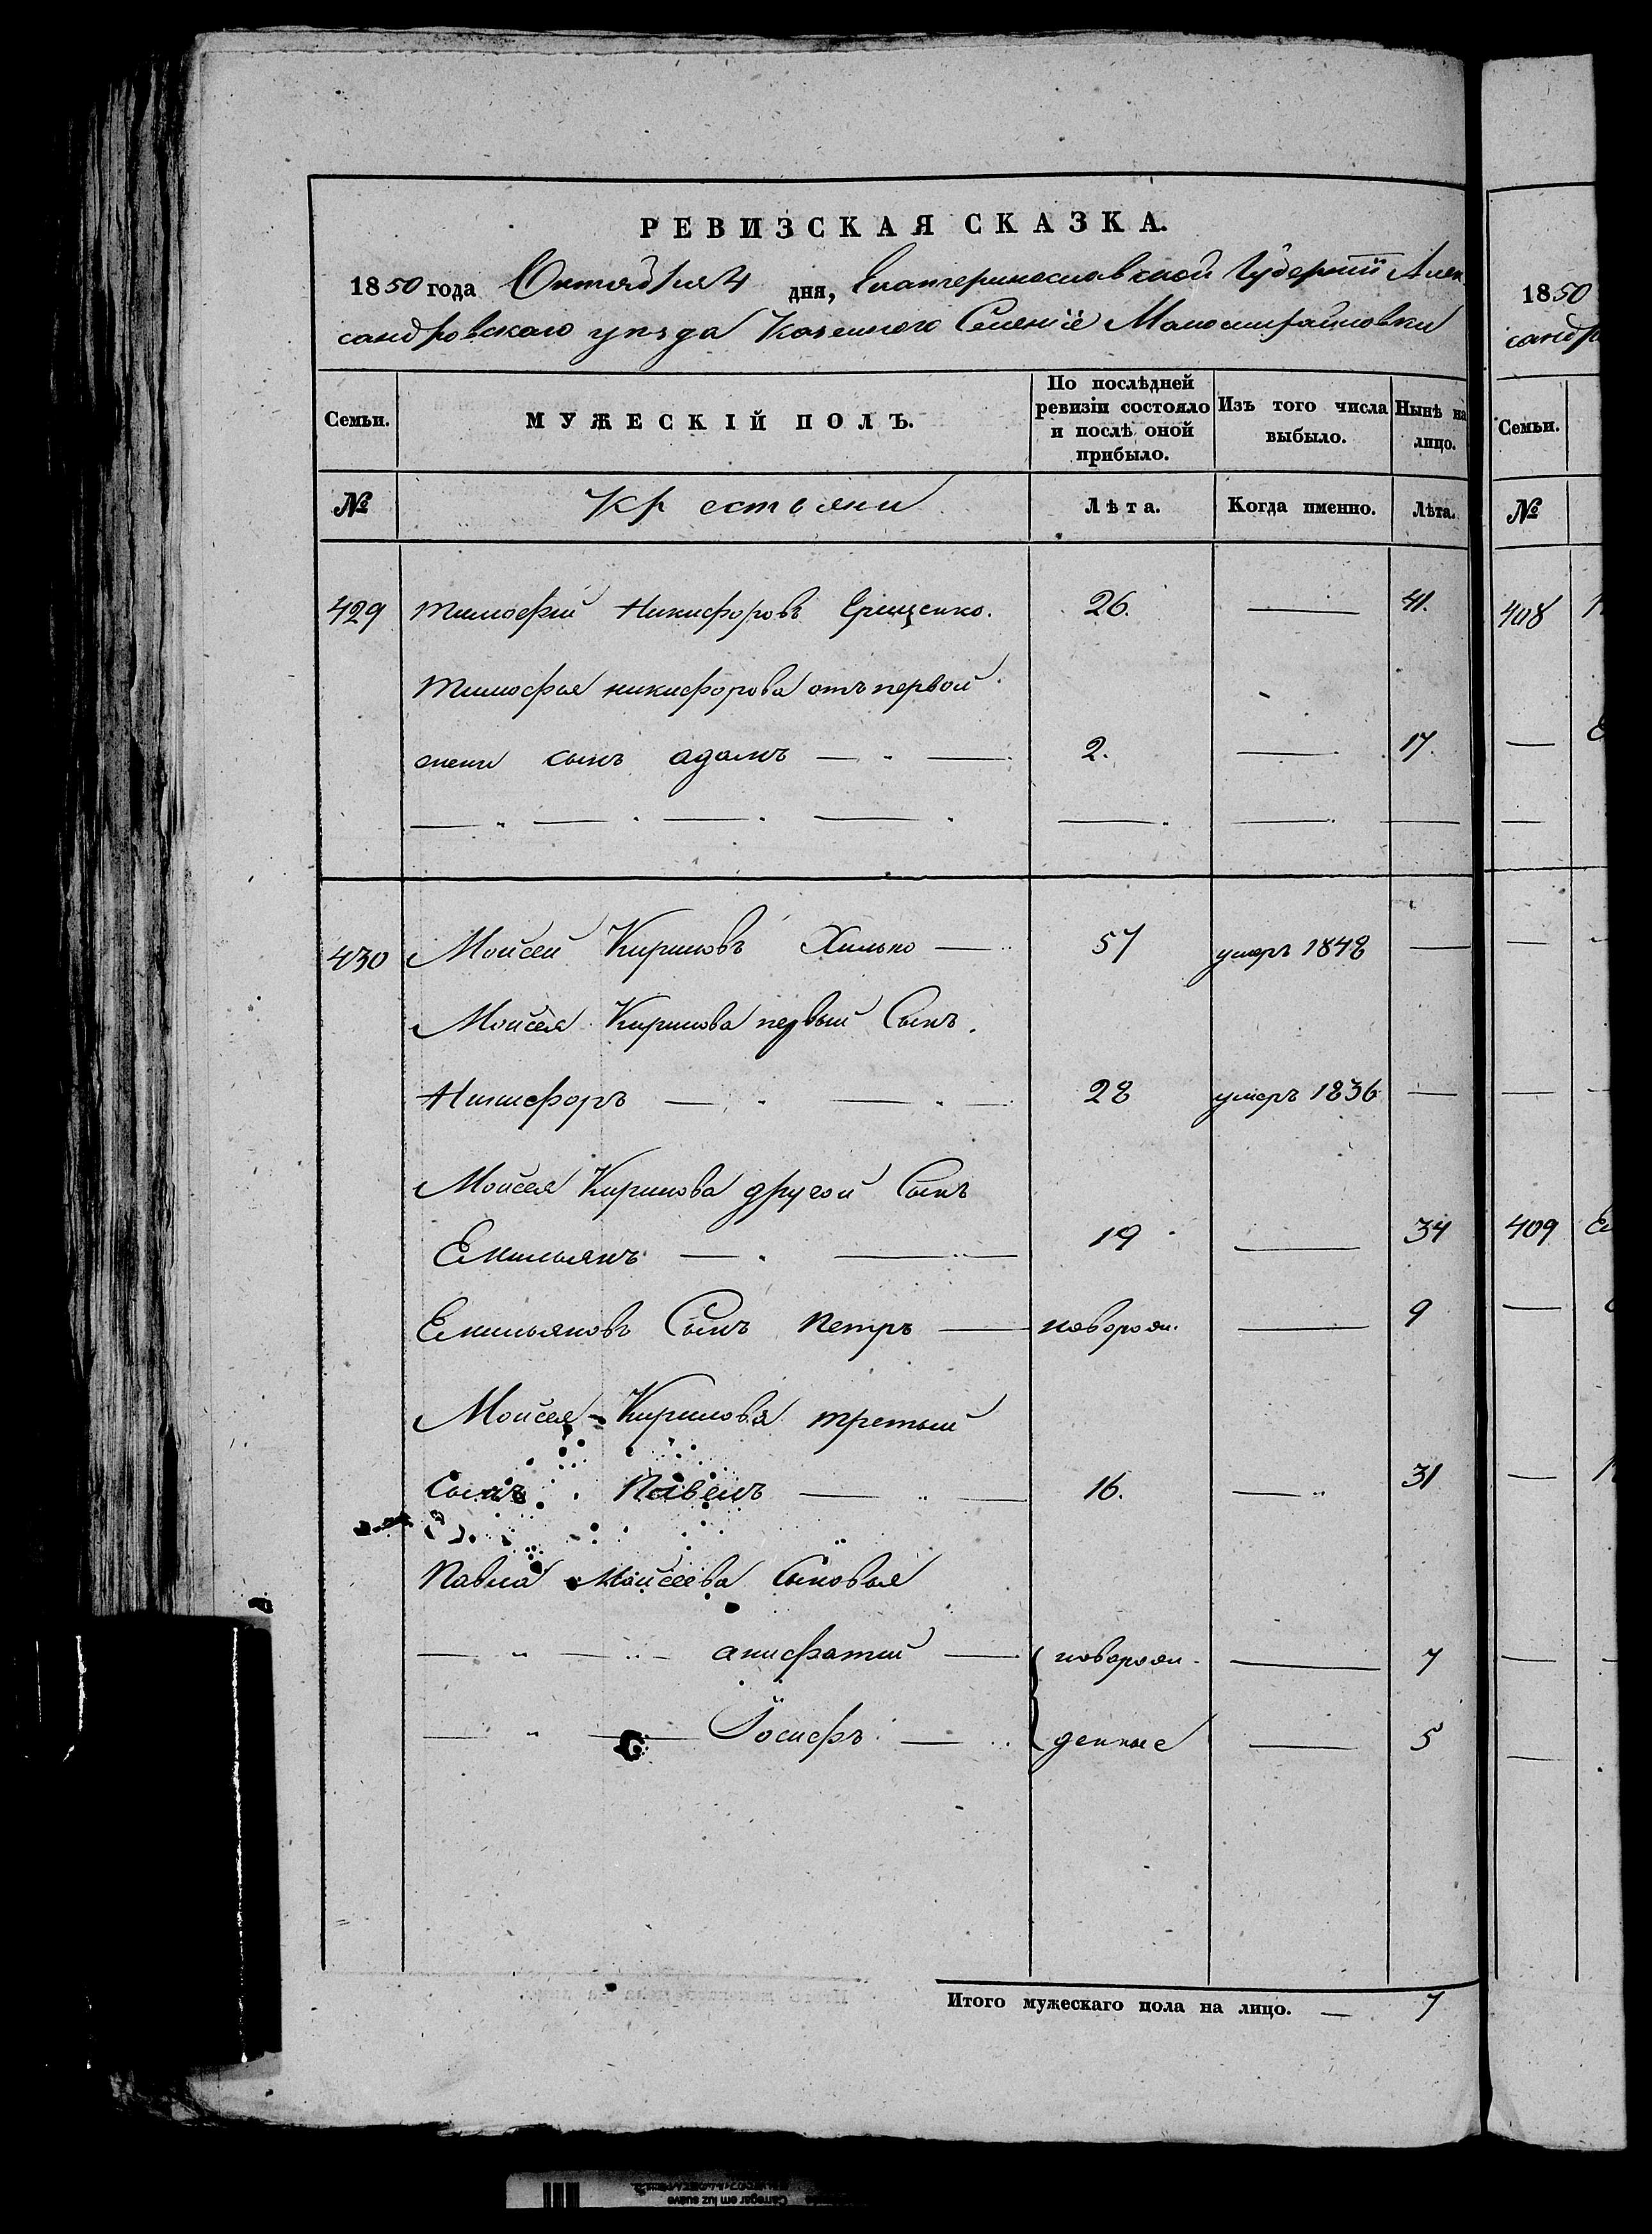 РЕВИЗСКАЯ СКАЗКА.
1850 года Октября 4 дня, Екатеринославской Губернiи Алек
сандровскаго уѣзда Казенного Селенiе Маломихайловки
Семьи. МУЖЕСКIЙ ПОЛЪ. По послѣдней ревизiи состояло и послѣ оной прибыло. Изъ того числа выбыло. Нынѣ на лицо.
№ Крестьяни Лѣта. Когда именно. Лѣта.
429 Тимофей Никифоровъ Грищенко. 26. — 41.
Тимофея никифорова отъ первой
жени сынъ адамъ — 2. — 17.
430 Мойсей Кириловъ Хилько — 57 умеръ 1848 —
Мойсея Кирилова первый Сынъ.
Никифоръ — 28 умеръ 1836 —
Мойсея Кирилова другой Сынъ
Емильянъ — 19 — 34
Емильяновъ Сынъ Петръ — новорож. — 9
Мойсея Кирилова третый
Сынъ Павелъ — 16. — 31
Павла Мойсеева Сыновья
— анифатий — новорож- — 7
— Iосифъ — денные — 5
Итого мужескаго пола на лицо. — 7
1850
сандро
Семьи.
№
408
409